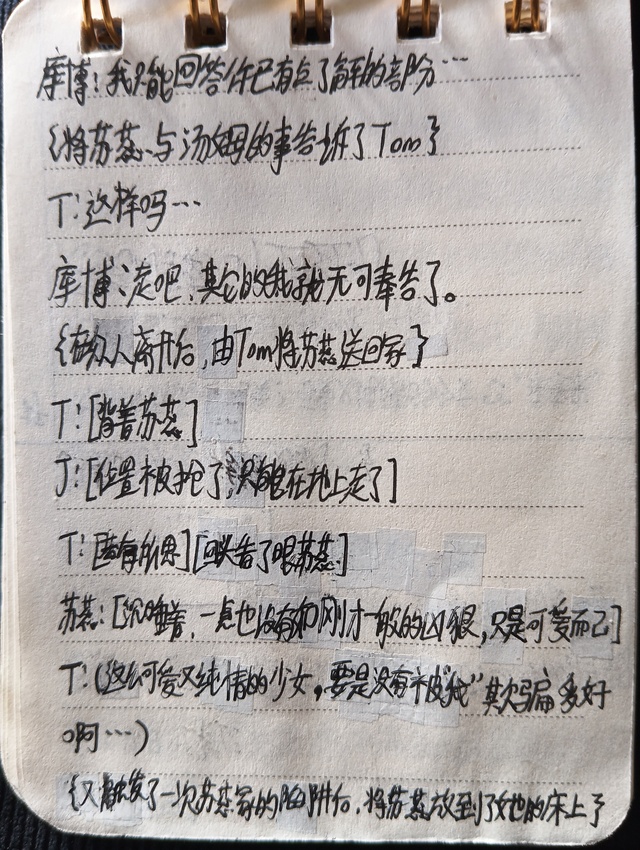 库博：我只能回答你已有点了解的部分…
{将苏蕊与汤姆的事告诉了Tom}
T：这样吗…
库博：走吧，其它的我就无可奉告了。
{在众人离开后，由Tom将苏蕊送回家}
T：[背着苏蕊]
J：[位置被抢了，只能在地上走了]
T：[若有所思][回头看了眼苏蕊]
苏蕊：[沉睡着，一点也没有如刚才一般的凶狠，只是可爱而已]
T：(这么可爱又纯情的少女，要是没有被“我”欺骗多好
啊…)
{又触发了一次苏蕊家的陷阱后，将苏蕊放到了她的床上了